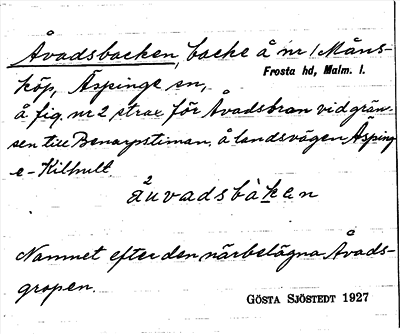 Åvadsbacken, backe å nr 1 Måns-
köp, Äspinge sn,
Frosta hd, Malm. l.
å fig. nr 2 strax för Åvadsbron vid grän-
sen till Benarpstiman, å landsvägen Äsping
e-Kilhult
ä²uvadsbàken
Namnet efter den närbelägna Åvads-
gropen.
GÖSTA SJÖSTEDT 1927